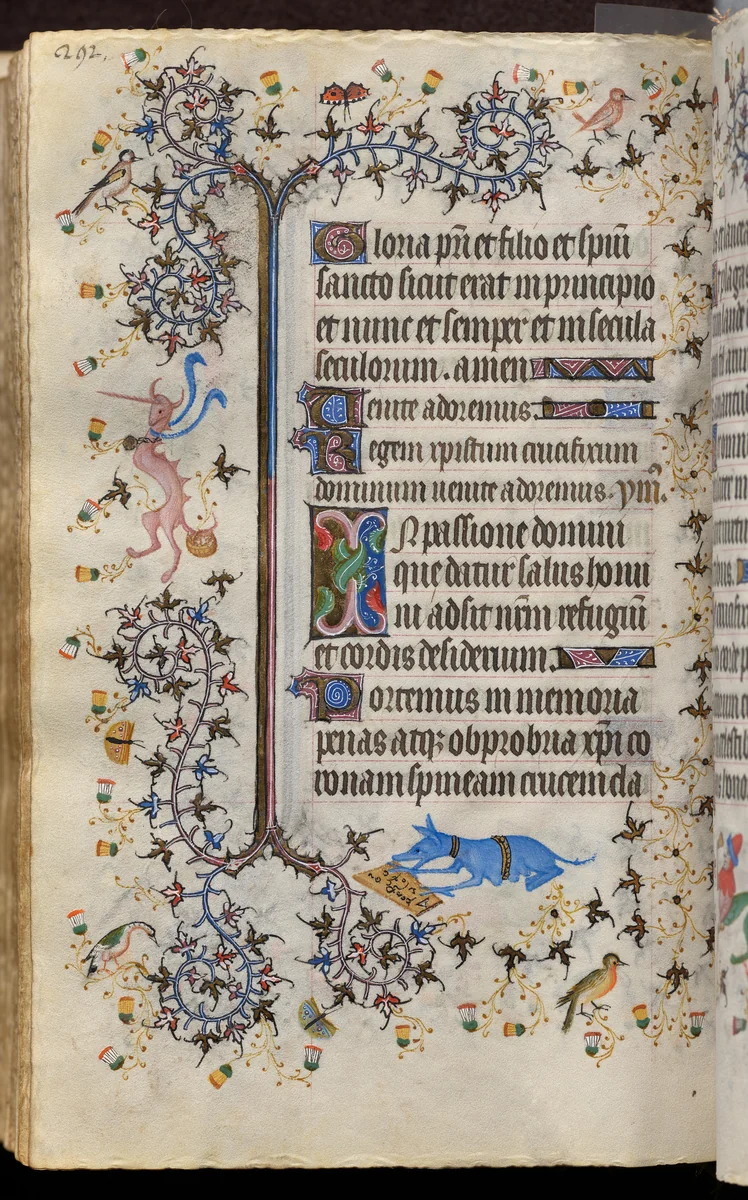 292.
Gloria pr̄i et filio et spiū
sancto sicut erat in principio
et nunc et semper et in secula
seculorum. amen
Uenite adoremus.
Regem xpistum crucifixum
dominum uenite adoremus. ym̄.
IN passione domini
que datur salus homi
ni adsit nr̄m refugiū
et cordis desiderium.
Portemus in memoria
penas atqꝫ obprobria xp̄i co
ronam spineam crucem cla